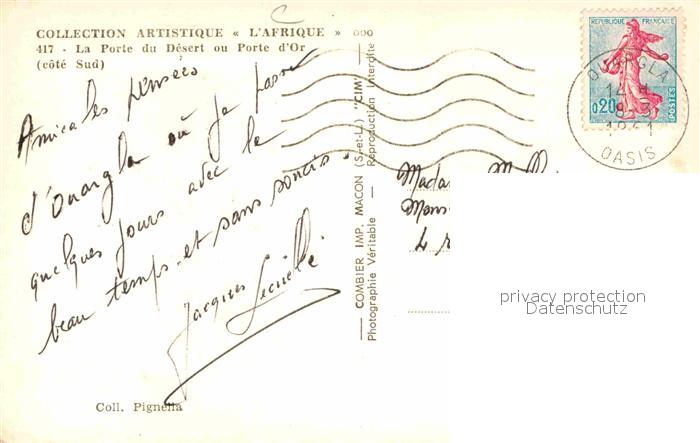 COLLECTION ARTISTIQUE « L'AFRIQUE » ooo
417 - La Porte du Désert ou Porte d'Or
(côté Sud)
Amicales pensées
d'Ouargla où je passe
quelques jours avec le
beau temps et sans soucis.
Jacques
Coll. Pignella
COMBIER IMP. MACON (S.-et-L.) "CIM"
Photographie Véritable - Reproduction Interdite
REPUBLIQUE FRANÇAISE
0,20
POSTES
OUARGLA
OASIS
privacy protection
Datenschutz